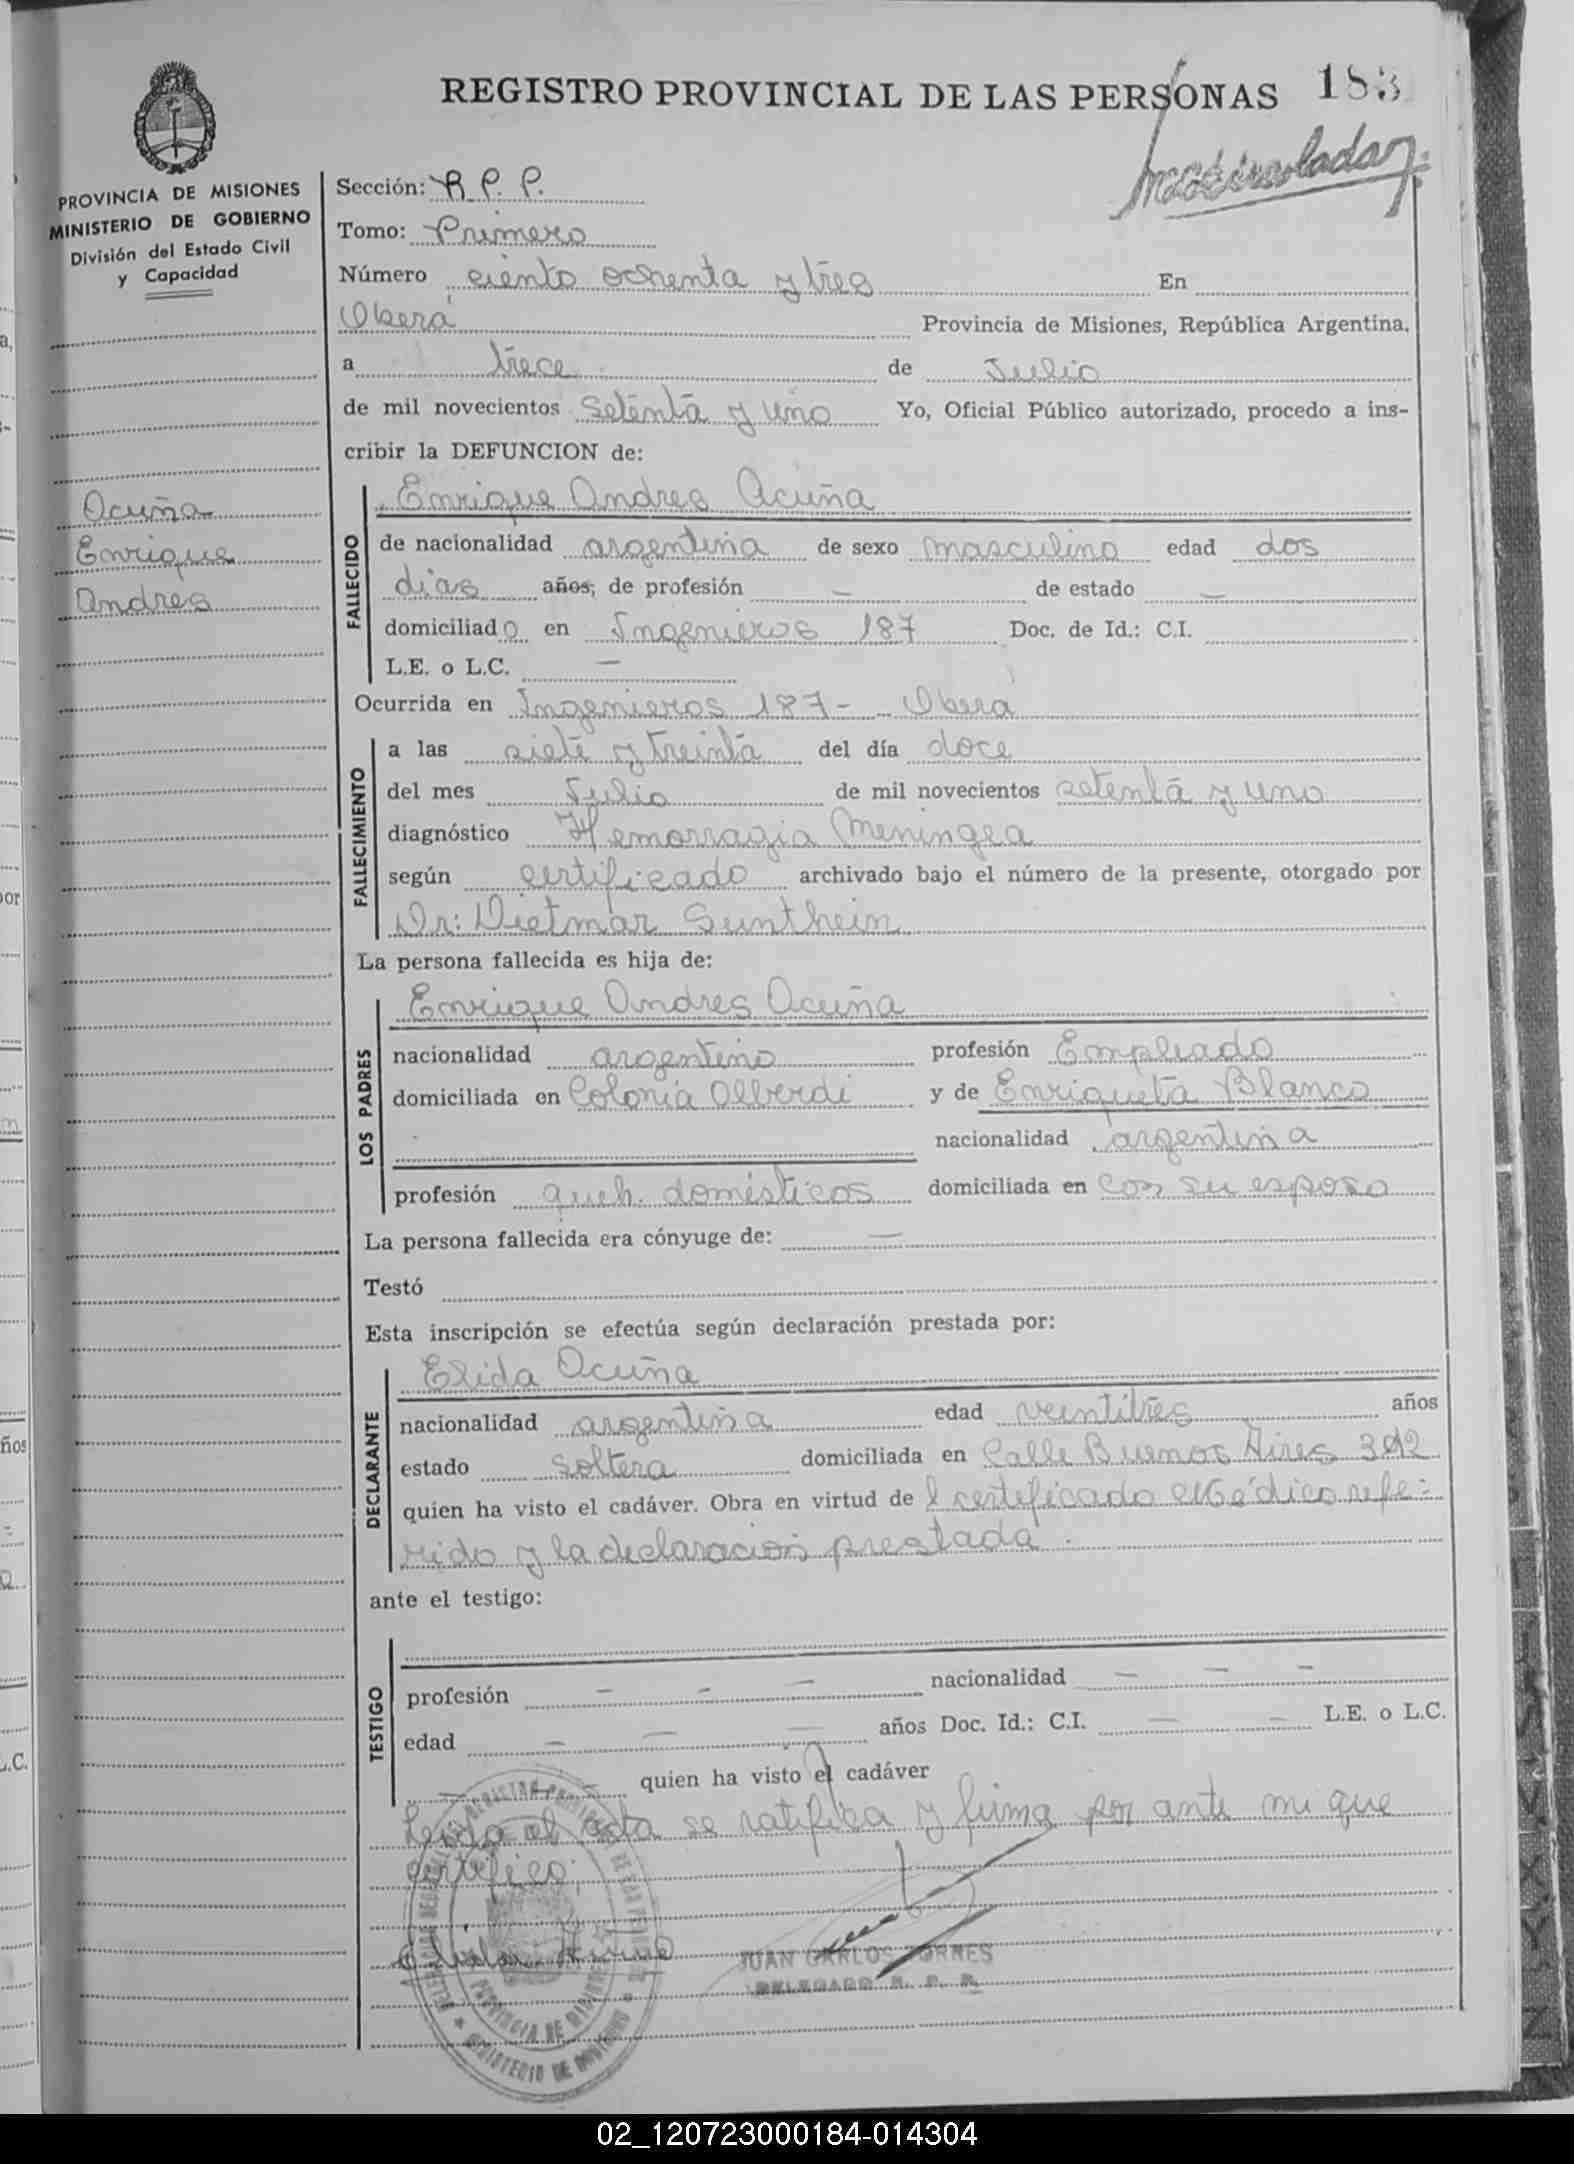 REGISTRO PROVINCIAL DE LAS PERSONAS 183
PROVINCIA DE MISIONES
MINISTERIO DE GOBIERNO
División del Estado Civil
y Capacidad
Acuña
Enrique
Andres
Sección: R. P. P.
Tomo: Primero
Número ciento ochenta y tres En
Oberá Provincia de Misiones, República Argentina,
a trece de Julio
de mil novecientos setenta y uno Yo, Oficial Público autorizado, procedo a ins-
cribir la DEFUNCION de:
FALLECIDO
Enrique Andres Acuña
de nacionalidad argentina de sexo masculino edad dos
dias años; de profesión — de estado —
domiciliado en Ingenieros 187 Doc. de Id.: C.I.
L.E. o L.C. —
Ocurrida en Ingenieros 187 - Oberá
FALLECIMIENTO
a las siete y treinta del día doce
del mes Julio de mil novecientos setenta y uno
diagnóstico Hemorragia Meningea
según certificado archivado bajo el número de la presente, otorgado por
Dr: Dietmar Sunthein
La persona fallecida es hija de:
LOS PADRES
Enrique Andres Acuña
nacionalidad argentino profesión Empleado
domiciliada en Colonia Alberdi y de Enriqueta Blanco
nacionalidad argentina
profesión queh. domésticos domiciliada en con su esposo
La persona fallecida era cónyuge de: —
Testó
Esta inscripción se efectúa según declaración prestada por:
DECLARANTE
Elida Acuña
nacionalidad argentina edad veintitres años
estado soltera domiciliada en Calle Buenos Aires
quien ha visto el cadáver. Obra en virtud de l certificado Médico refe-
rido y la declaración prestada.
ante el testigo:
TESTIGO
profesión — — — nacionalidad — — —
edad — — — años Doc. Id.: C.I. — — L.E. o L.C.
quien ha visto el cadáver
Leida el acta se ratifica y firma por ante mi que
certifico:
JUAN CARLOS TORRES
DELEGADO R. P. P.
02_120723000184-014304